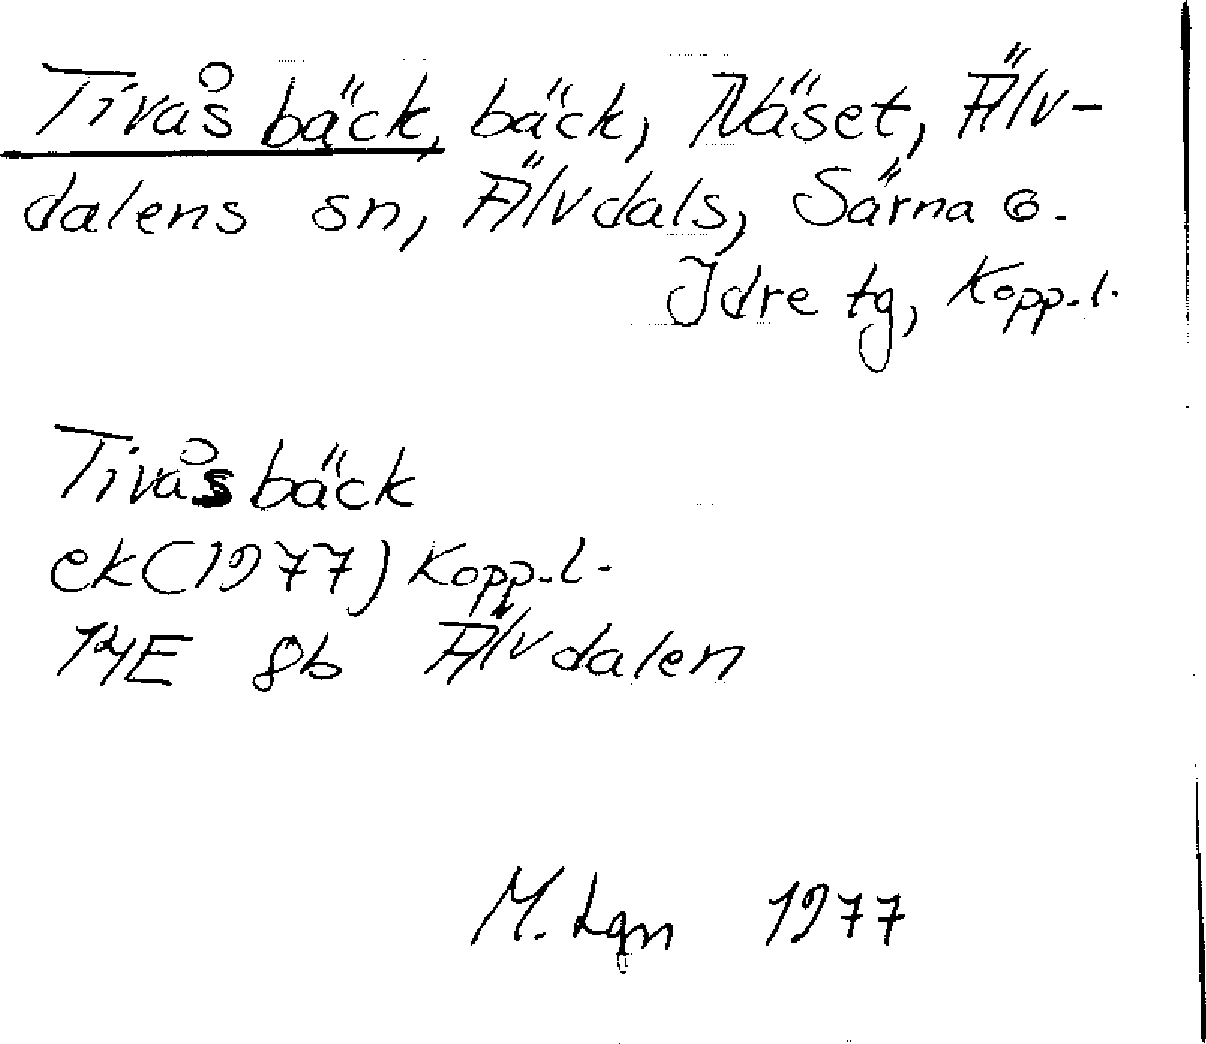 Tivåsbäck, bäck, Näset, Älv-
dalens sn, Älvdals, Särna o.
Idre tg, Kopp.l.
Tivåsbäck
ek(1977) Kopp.l.
14E 8b Älvdalen
M. Lgn 1977